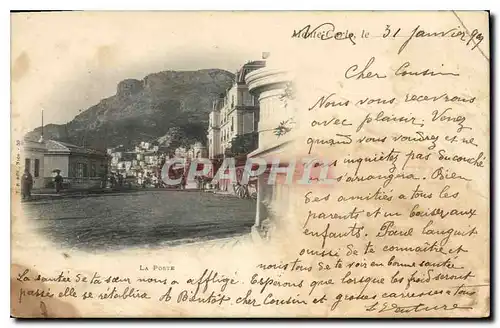 Monte-Carlo, le 31 Janvier 99
Nice
Cher Cousin
Nous vous recevrons
avec plaisir. Venez
quand vous voudrez et ne
inquiets pas du couché
s'arangera. Bien
des amitiés a tous les
parents et un baiser aux
enfants. Paul languit
aussi de te connaitre et
nous tous de te voir en bonne santé
La santée de ta sœur nous a affligé. Esperons que lorsque les froids seront
passés elle se retablira. A Bientôt cher Cousin et grosses caresses a tous
LA POSTE
CPARAMA